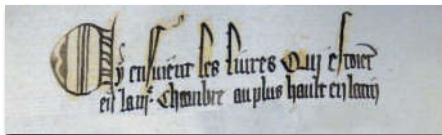 Cy ensuient les liures Qui estoiẽt
en la . Chambre au plus hault en lan